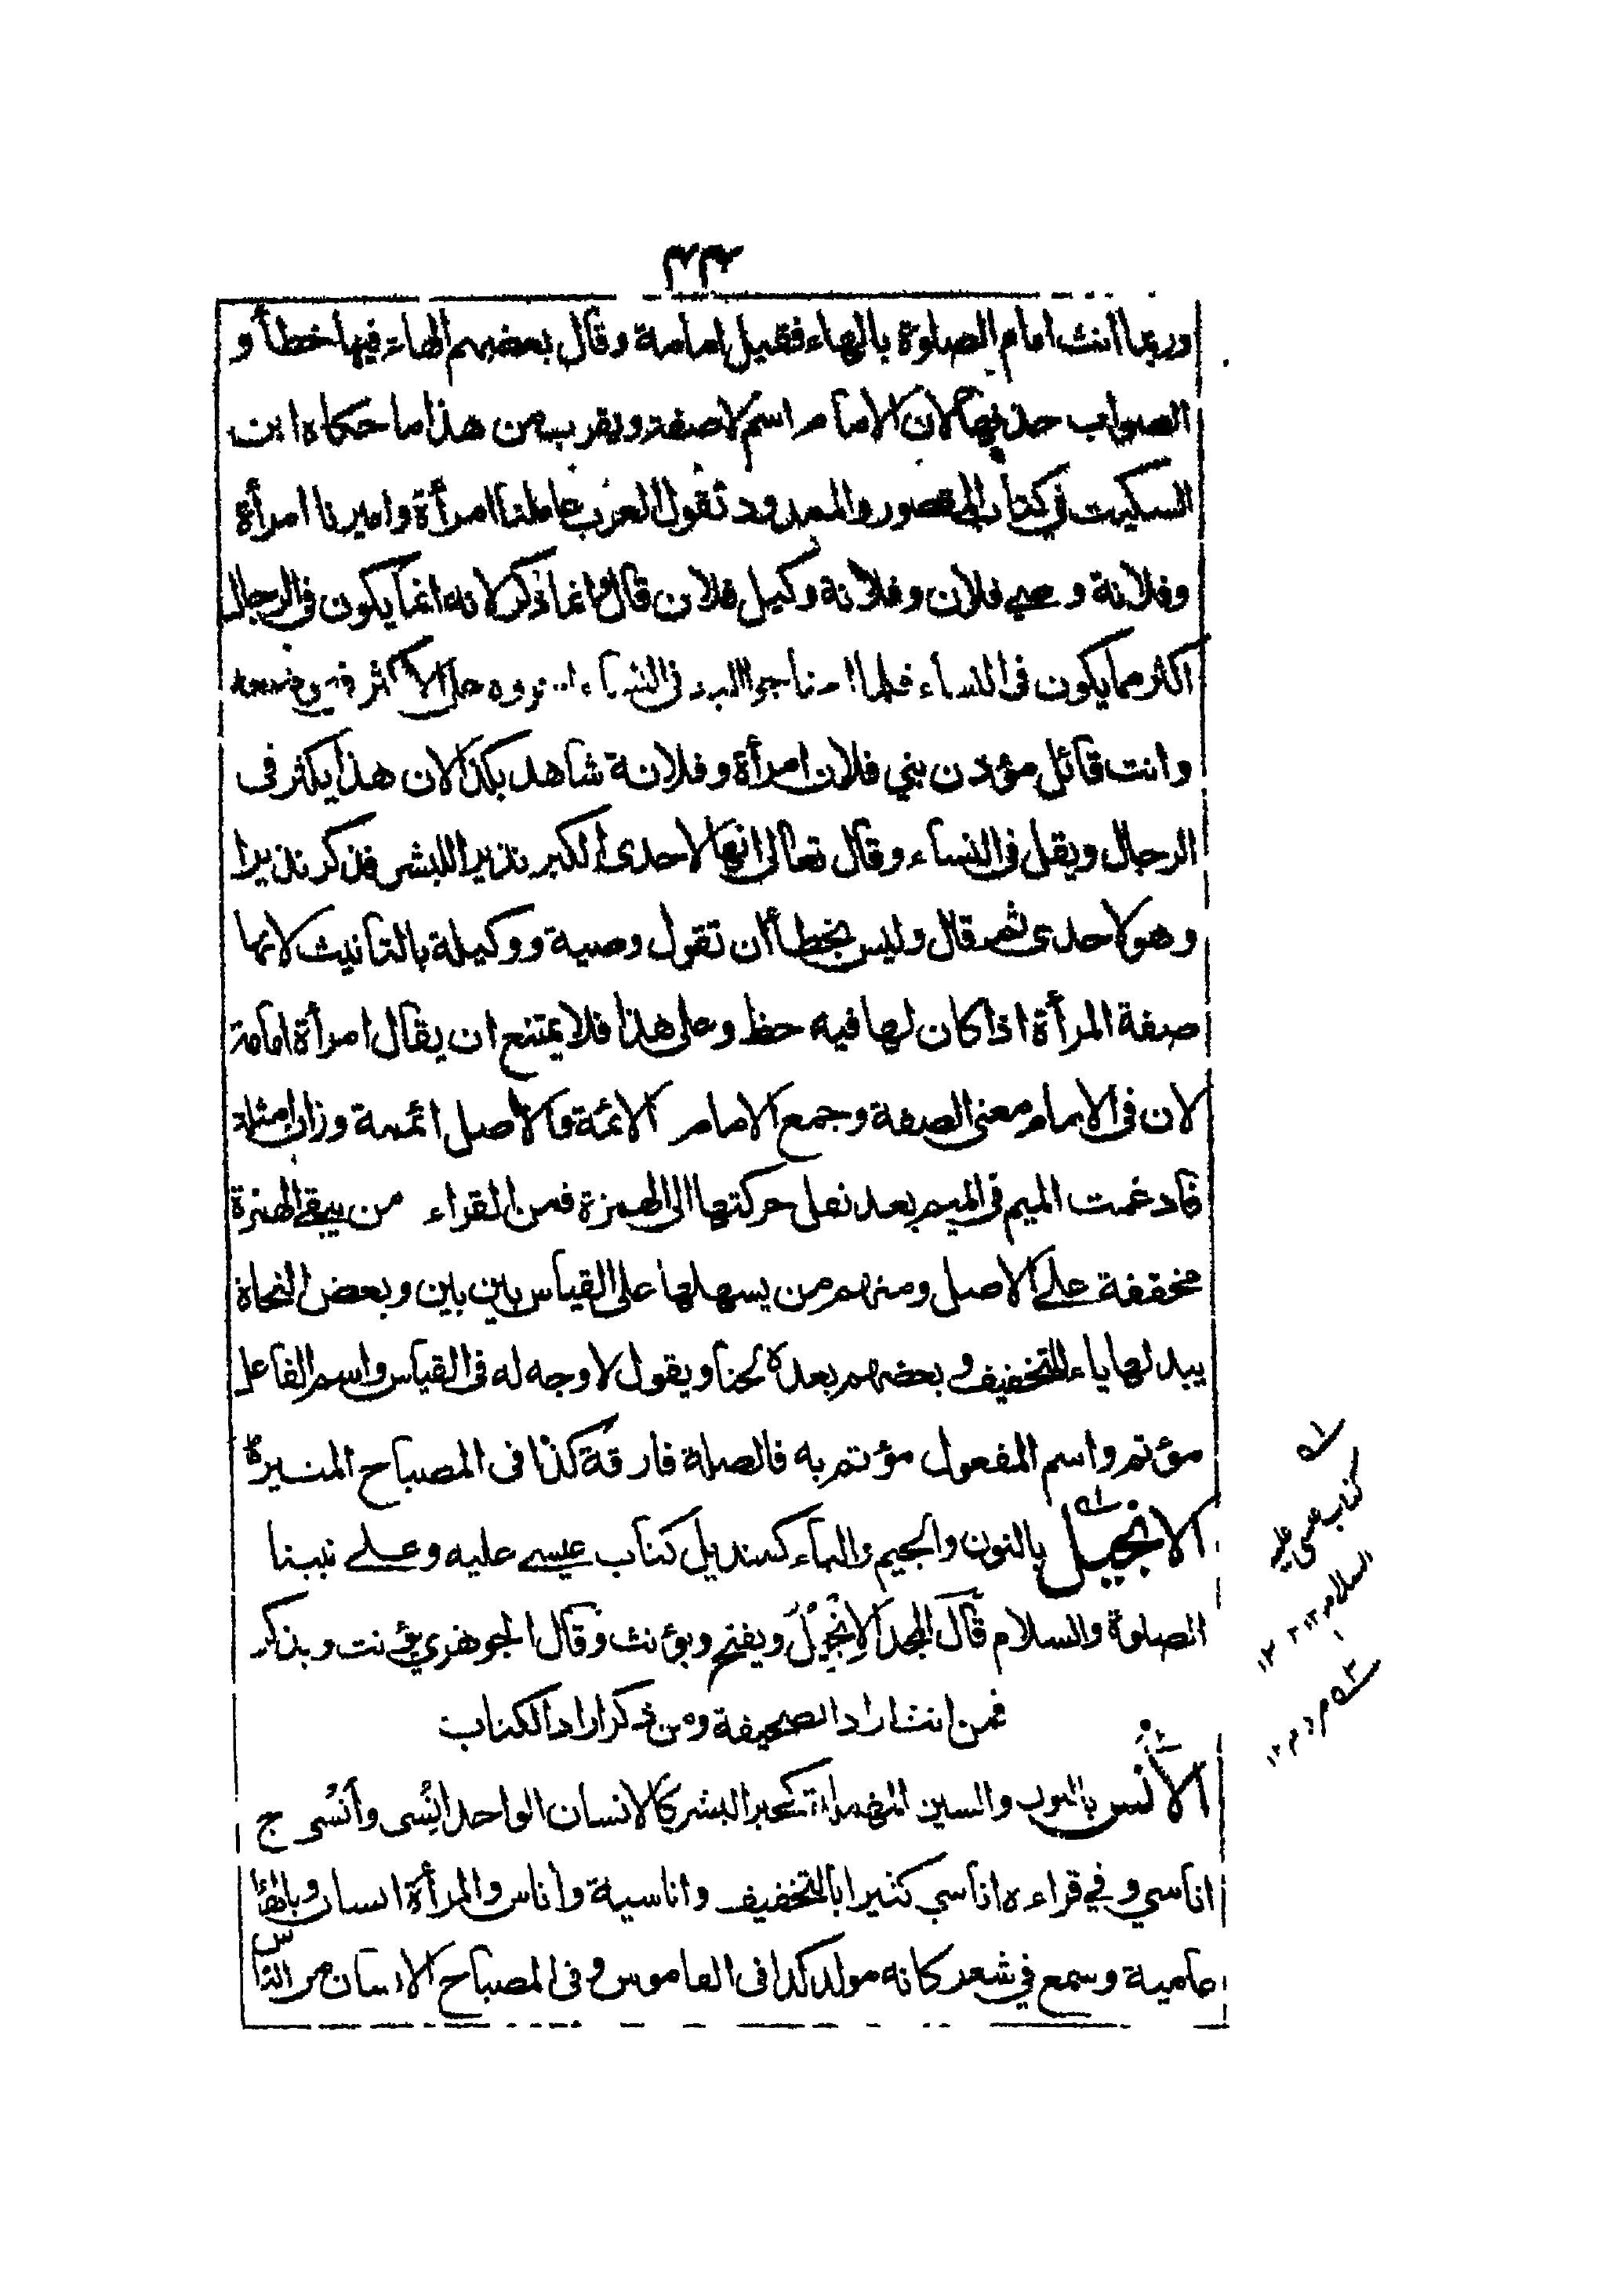 ٣٣
وربما انث امام الصلوة بالهاء فقيل امامة وقال بعضهم الهاء فيها خطأ و
الصواب حذفها لان الامام اسم لا صفة ويقرب من هذا ما حكاه ابن
السكيت في كتاب المقصور والممدود تقول العرب عاملنا امرأة واميرنا امرأة
وفلانة وصي فلان وفلانة وكيل فلان قال وانما ذكر لانه انما يكون في الرجال
اكثر مما يكون في النساء فلما في النساء اجروه على الاكثر في
وانت قائل مؤذن بني فلان امرأة وفلانة شاهد بكذا لان هذا يكثر في
الرجال ويقل في النساء وقال تعالى انها لاحدى الكبر نذيرا للبشر فذكر نذيرا
وهو لاحدى ثم قال وليس بخطأ ان تقول وصية ووكيلة بالتانيث لانها
صفة المرأة اذا كان لها فيه حظ وعلى هذا فلا يمتنع ان يقال امرأة امامة
لان في الامام معنى الصفة وجمع الامام الائمة والاصل ائممة وزان امثلة
فادغمت الميم في الميم بعد نقل حركتها الى الهمزة فمن القراء من يبقي الهمزة
مخففة على الاصل ومنهم من يسهلها على القياس بين بين وبعض النحاة
يبدلها ياء للتخفيف و بعضهم بعده لحنا ويقول لا وجه له في القياس واسم الفاعل
مؤتم واسم المفعول مؤتم به فالصلة فارقة كذا في المصباح المنير
الانجيل بالنون والجيم والياء كسنديل كتاب عيسى عليه وعلى نبينا
الصلوة والسلام قال المجد الإنجيل ويفتح ويؤنث وقال الجوهري يؤنث ويذكر
فمن انث اراد الصحيفة ومن ذكر اراد الكتاب
الأنس بالنون والسين المهملة كحبر البشر كالانسان الواحد انسى وأنسى ج
اناسي و في قراءه اناسي كثيرا بالتخفيف واناسية واناس والمرأة انسان وبالهاء
عامية وسمع في شعر كانه مولد كذا في القاموس و في المصباح الانسان من الناس
كتاب عيسى عليه
السلام ١٢